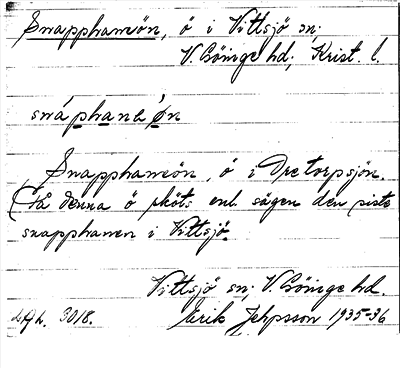 Snapphaneön, ö i Vittsjö sn;
V. Göinge hd; Krist. l.
snáphanəǿn
Snapphaneön, ö i Pretorpsjön.
(På denna ö sköts enl. sägen den siste
snapphanen i Vittsjö.
Vittsjö sn; V. Göinge hd.
3018. Erik Jeppsson 1935-36